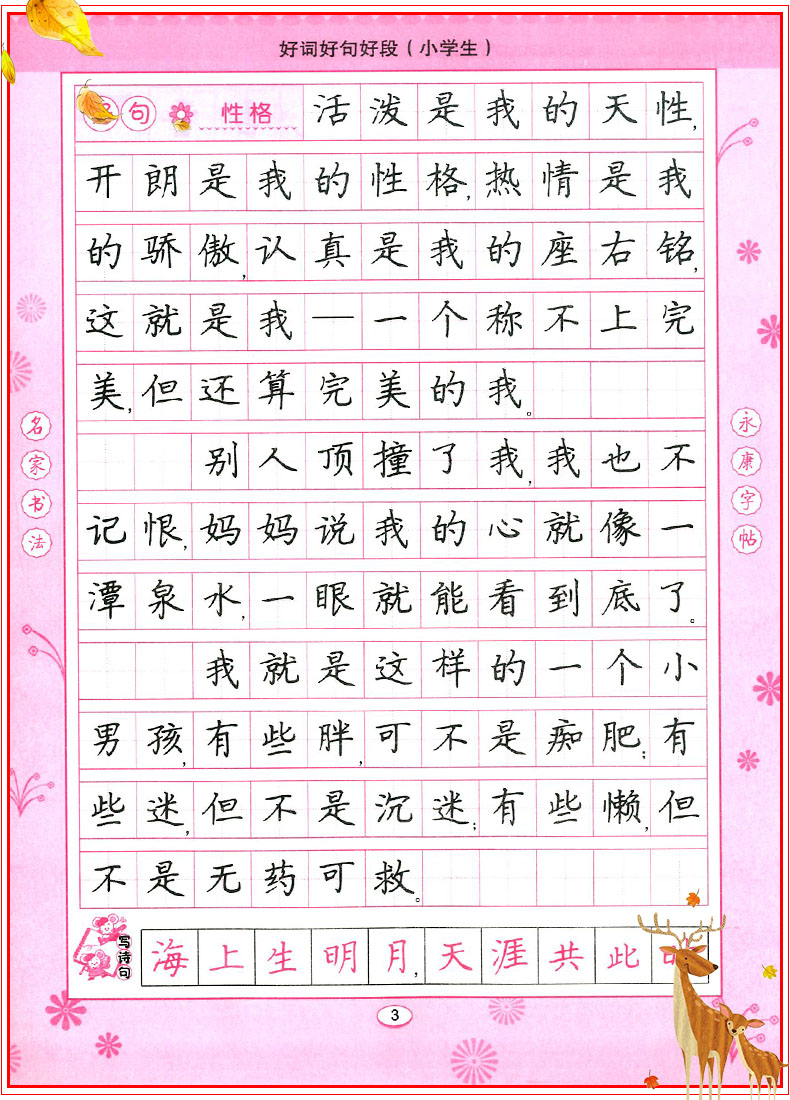 好词好句好段（小学生）
句 性格 活泼是我的天性,
开朗是我的性格,热情是我
的骄傲,认真是我的座右铭,
这就是我—一个称不上完
美,但还算完美的我。
别人顶撞了我,我也不
记恨,妈妈说我的心就像一
潭泉水,一眼就能看到底了。
我就是这样的一个小
男孩,有些胖,可不是痴肥;有
些迷,但不是沉迷;有些懒,但
不是无药可救。
写诗句 海上生明月,天涯共此
名家书法
永康字帖
3